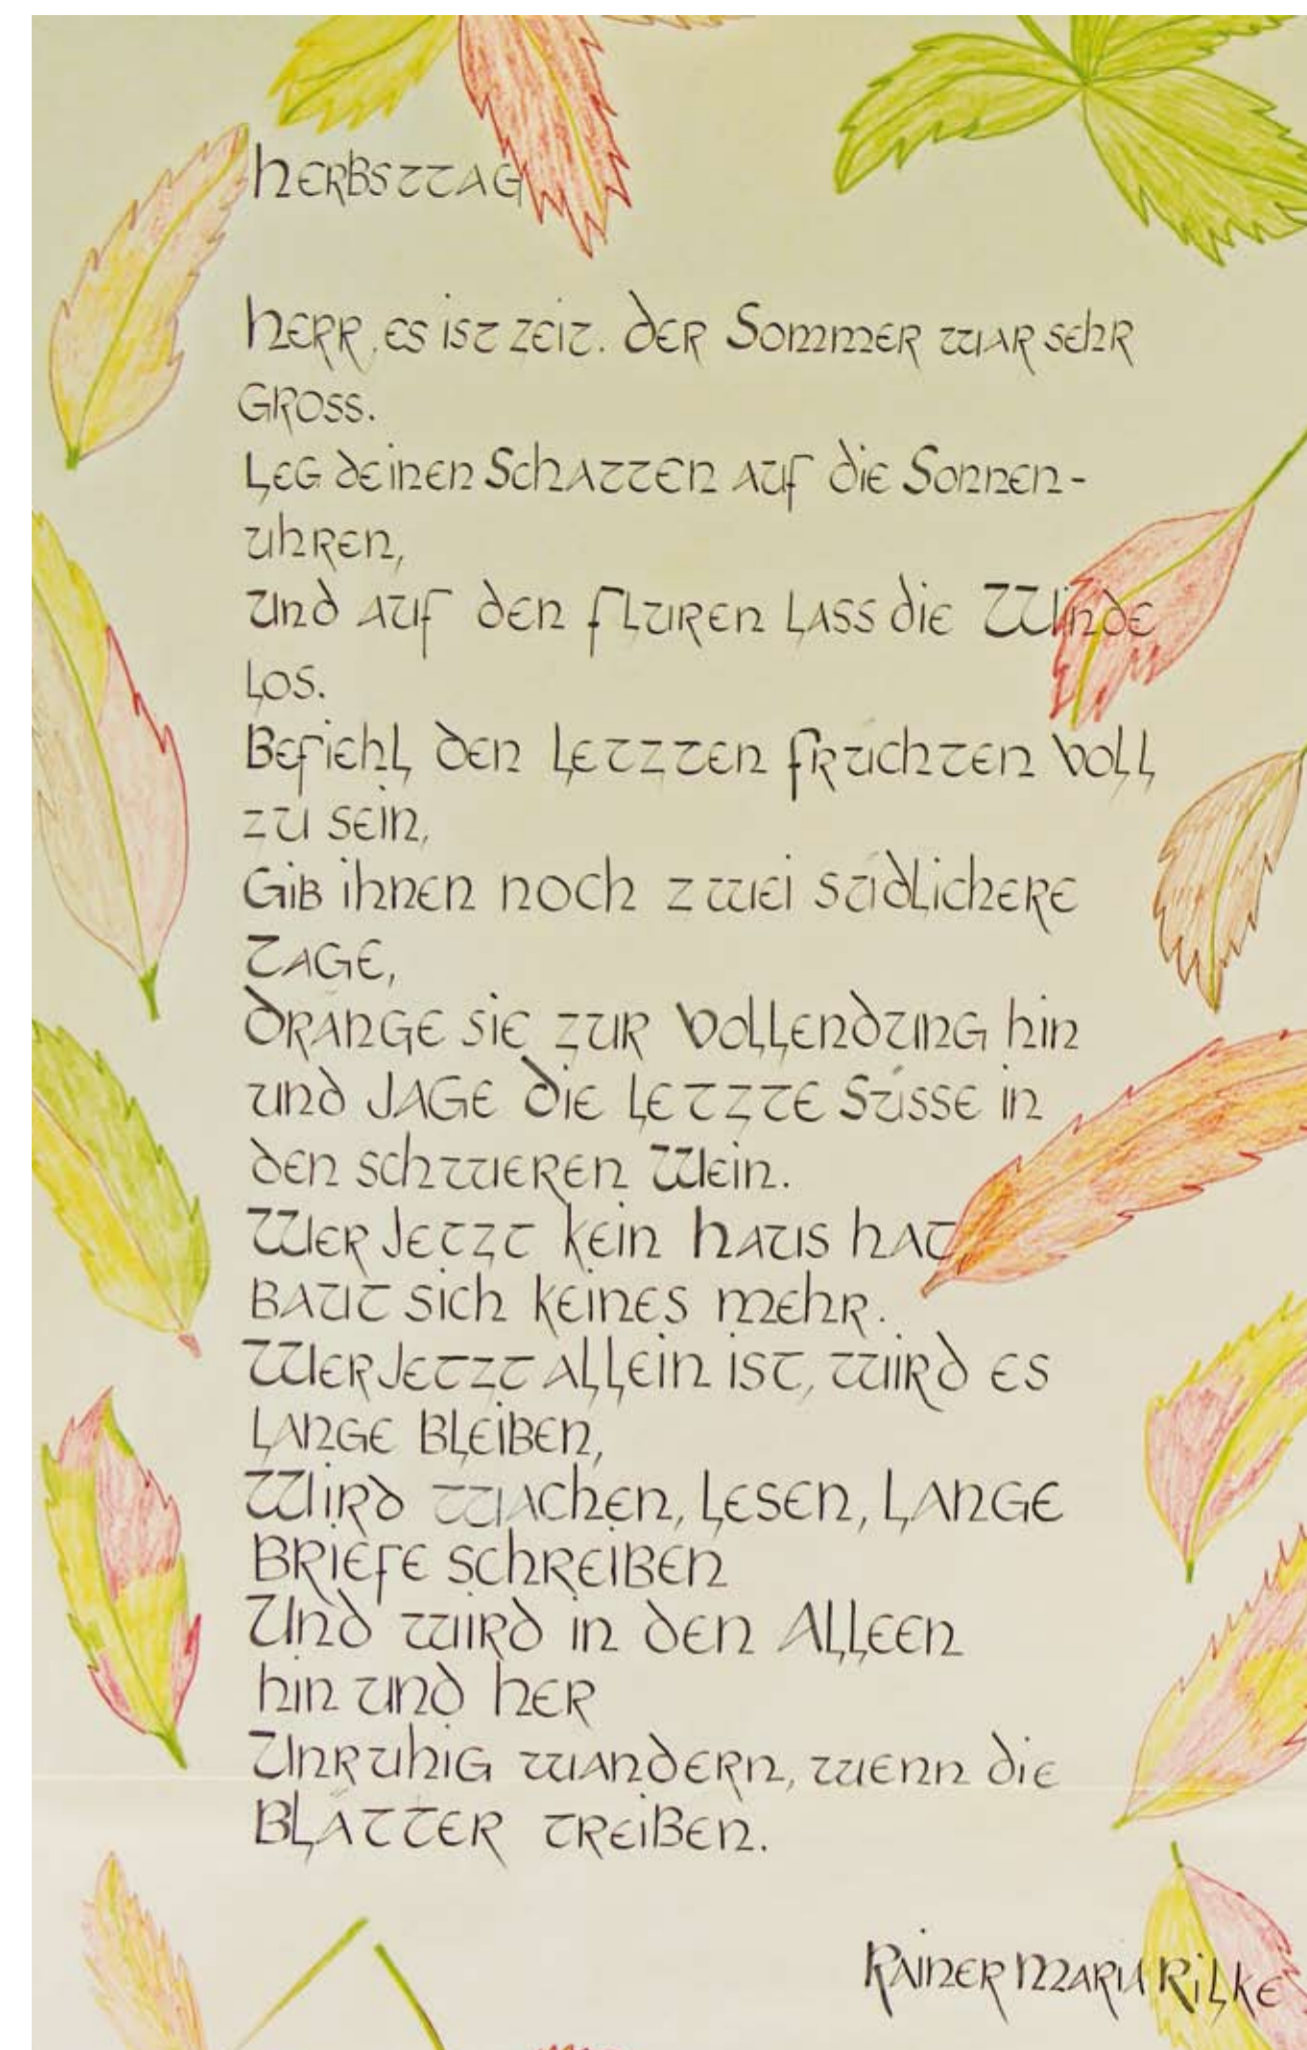 Herbsttag
Herr, es ist Zeit. Der Sommer war sehr
gross.
Leg deinen Schatten auf die Sonnen-
uhren,
und auf den Fluren lass die Winde
los.
Befiehl den letzten Früchten voll
zu sein,
Gib ihnen noch zwei südlichere
Tage,
Dränge sie zur Vollendung hin
und jage die letzte Süsse in
den schweren Wein.
Wer jetzt kein Haus hat
baut sich keines mehr.
Wer jetzt allein ist, wird es
lange bleiben,
Wird wachen, lesen, lange
Briefe schreiben
Und wird in den Alleen
hin und her
Unruhig wandern, wenn die
Blätter treiben.
Rainer Maria Rilke